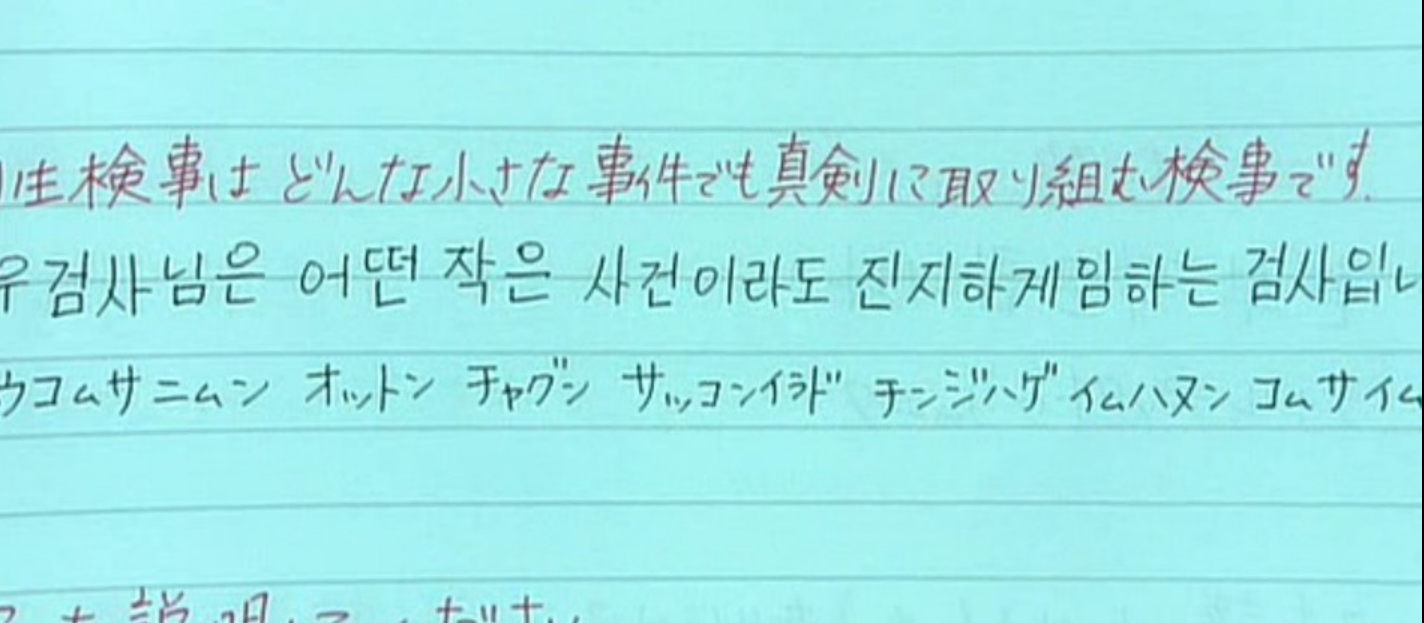 生検事は どんな小さな事件でも真剣に取り組む検事です.
우검사님은 어떤 작은 사건이라도 진지하게임하는 검사입니
ウコムサニムン オットン チャグン サッコンイラド チーンジハゲ イムハヌン コムサイム
説明してください